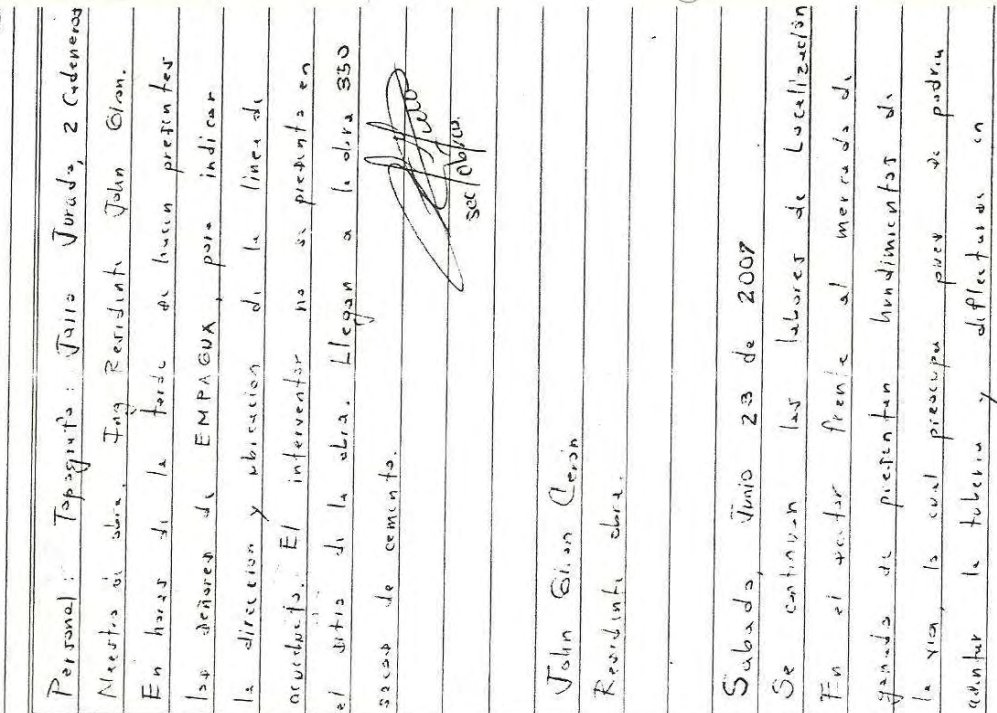 Personal: Topografo: Jairo Jurado, 2 Cadeneros
Maestro de obra. Ing Residente John Giron.
En horas de la tarde se hacen presentes
los señores de EMPAGUA, para indicar
la direccion y ubicacion de la linea de
acueducto. El interventor no se presenta en
el sitio de la obra. Llegan a la obra 350
sacos de cemento.
John Giron Ceron
Residente obra.
Sabado, Junio 23 de 2007
Se continuan las labores de Localización
En el sector frente al mercado de
ganado se presentan hundimientos de
la via, lo cual preocupa pues se podria
asentar la tuberia y deflectarse en